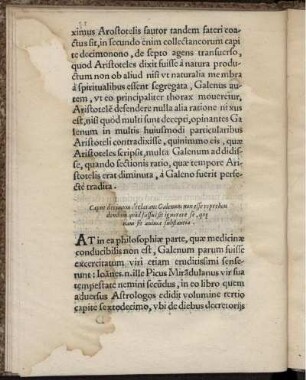 ximus Arostotelis fautor tandem fateri coa-
ctus sit, in secundo enim collectaneorum capite
decimonono, de septo agens transuerso,
quod Aristoteles dixit fuisse à natura produ
ctum non ob aliud nisi vt naturalia membra
à spiritualibus essent segregata, Galenus au
tem, vt eo principaliter thorax moueretur,
Aristotelē defendere nulla alia ratione nixus
est, nisi quòd multi sunt decepti, opinantes Ga
lenum in multis huiusmodi particularibus
Aristoteli contradixisse, quinimmo eis quæ
Aristoteles scripsit, multa Galenum addidis-
se, quando sectionis ratio, quæ tempore Aris
totelis erat diminuta, à Galeno fuerit perfe
ctè tradita.
Galenum non esse reprehen
dendum quòd fassus sit ignorare se,
sit animæ substantia.
AT in ea philosophiæ parte, quæ medicinæ
conducibilis non est, Galenum parum fuisse
exercitatum viri etiam eruditissimi sense-
runt: Ioānes nāille Picus Mirādulanus vir sua
tempestate nemini secūdus, in eo libro quem
aduersus Astrologos edidit volumine tertio
capite sextodecimo, vbi de diebus decretorijs